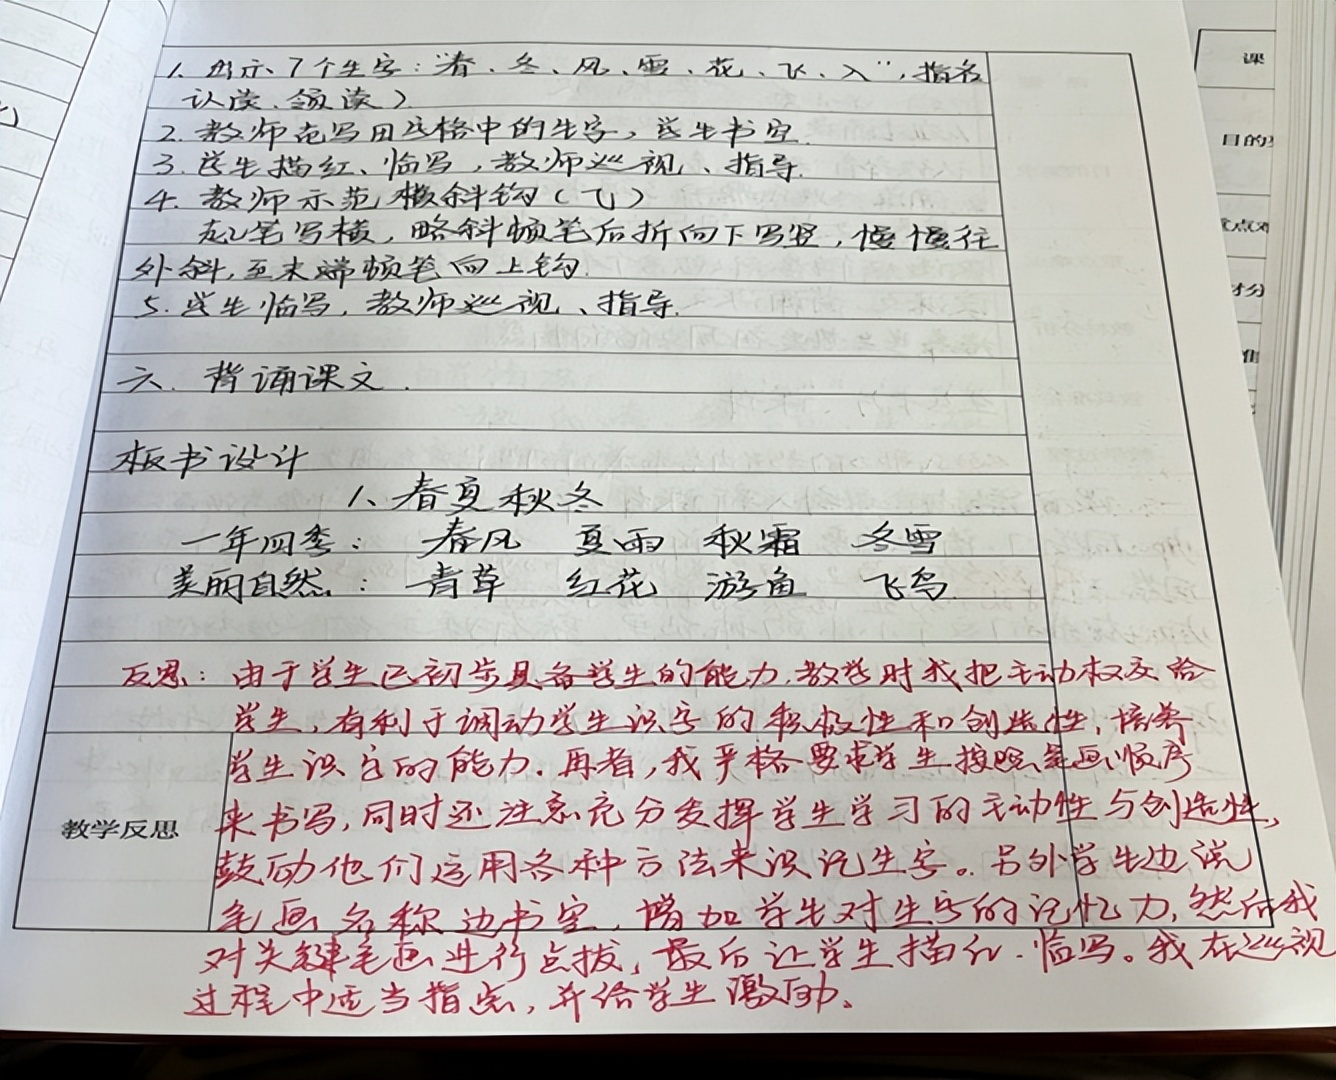 1. 出示7个生字:“春、冬、风、雪、花、飞、入”,指名
认读、领读)
2. 教师范写田字格中的生字,学生书空.
3. 学生描红、临写,教师巡视、指导.
4. 教师示范横斜钩(⺄)
起笔写横,略斜顿笔后折向下写竖,慢慢往
外斜,至末端顿笔向上钩.
5. 学生临写,教师巡视、指导.
六. 背诵课文.
板书设计
1、春夏秋冬
一年四季: 春风 夏雨 秋霜 冬雪
美丽自然: 青草 红花 游鱼 飞鸟.
反思:由于学生已初步具备学生的能力,教学时我把主动权交给
学生,有利于调动学生识字的积极性和创造性,培养
学生识字的能力.再者,我严格要求学生按照笔画顺序
来书写,同时还注意充分发挥学生学习的主动性与创造性,
教学反思
鼓励他们运用各种方法来识记生字。另外学生边说
笔画名称边书空,增加学生对生字的记忆力,然后我
对关键笔画进行点拨,最后让学生描红.临写。我在巡视
过程中适当指点,并给学生激励。
课
目的